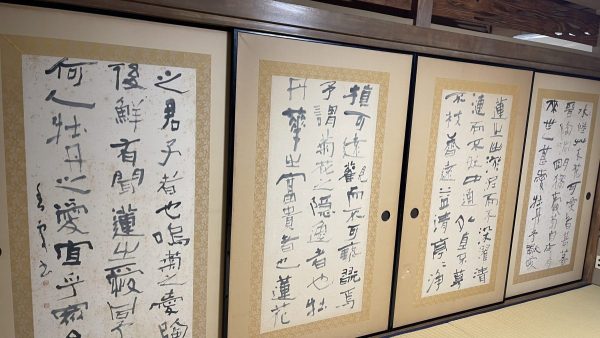 水陸艸木花可愛者甚蕃
晉陶淵明獨愛菊自李唐
來世人甚愛牡丹予獨愛
蓮之出淤泥而不染濯清
漣而不妖中通外直不蔓
不枝香遠益清亭々淨
植可遠觀而不可褻翫焉
予謂菊花之隠逸者也牡
丹華之富貴者也蓮花
之君子者也嗚菊之愛陶
後鮮有聞蓮之愛同予
何人牡丹之愛宜乎